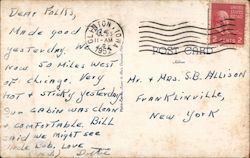 Dear Folks,
Made good
yesterday. We
now 50 miles west
of Chicago. Very
hot & sticky yesterday
Our cabin was clean
& comfortable. Bill
said we might see
Uncle Bob. Love
Dottie
IOWA
1952
POST CARD
Mr. & Mrs. S.B. Allison
Franklinville,
New York
2 CENTS 2